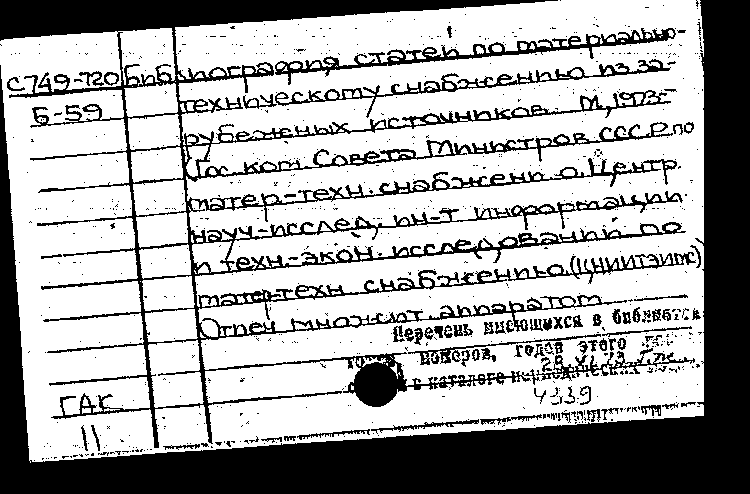 С749-720 Библиография статей по материально-
Б-59 техническому снабжению из за-
рубежных источников. М, 1973-
(Гос. ком. Совета Министров СССР по
матер-техн. снабжени о. Центр.
науч-исслед. ин-т информации
и техн.-экон. исследований по
матер-техн снабжению (ЦНИИТЭИМС)
Отпеч множит. аппаратом
Перечень имеющихся в библиотеке
номеров, годов этого
28 VI 73
в каталоге периодических
ГАК 4339
11